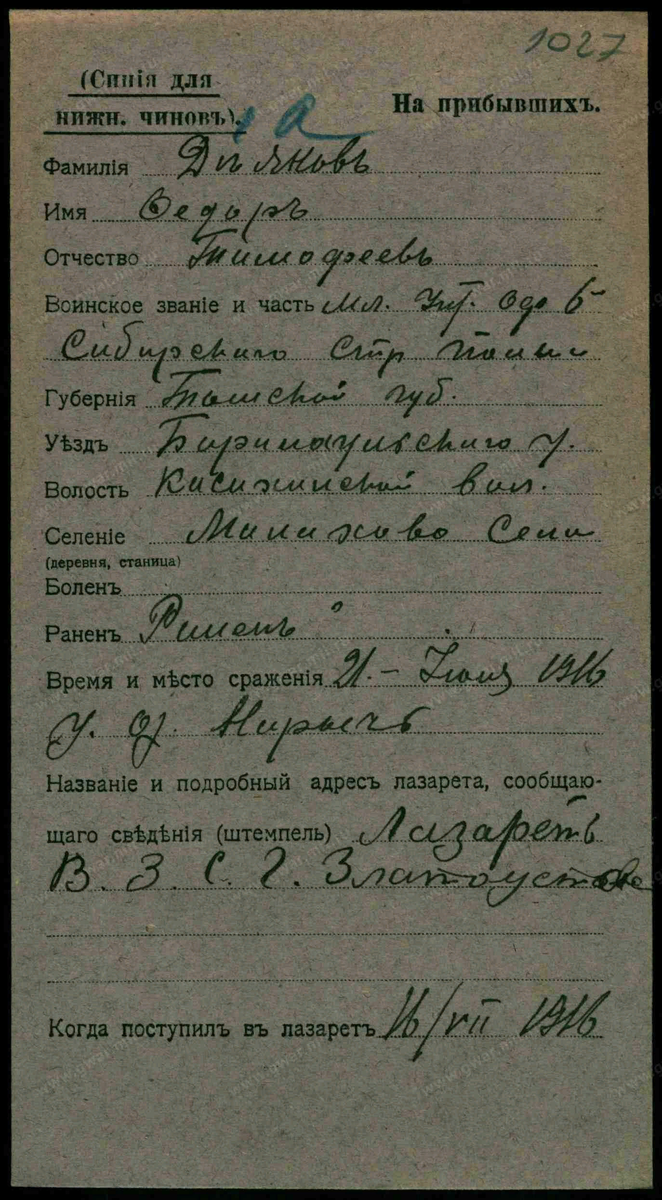 1027
(Синія для
нижн. чиновъ).
На прибывшихъ.
Фамилія Дьяковъ
Имя Ѳедоръ
Отчество Тимофеевъ
Воинское званіе и часть Мл. Унт. Оф 5
Сибирскаго Стр полка
Губернія Томской губ.
Уѣздъ Барнаульскаго у.
Волость Касихинской вол.
Селеніе Малахово Село
(деревня, станица)
Боленъ
Раненъ Раненъ
Время и мѣсто сраженія 21 - Іюня 1916
у. оз. Нарочъ
Названіе и подробный адресъ лазарета, сообщаю-
щаго свѣдѣнія (штемпель) Лазаретъ
В. З. С. Г. Златоустовѣ
Когда поступилъ въ лазаретъ 16/VII 1916